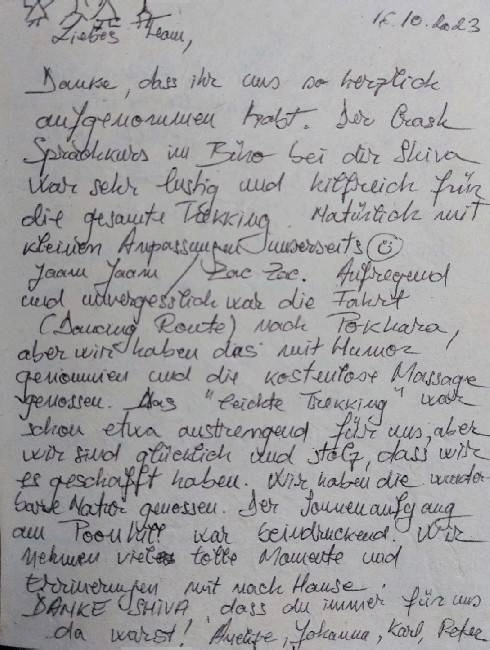 16.10.2023
Liebes Team,
Danke, dass ihr uns so herzlich
aufgenommen habt. Der Crash
Sprachkurs im Büro bei dir Shiva
war sehr lustig und hilfreich für
die gesamte Trekking. Natürlich mit
kleinen Anpassungen unserseits ☺
Jaam Jaam / Zac Zac. Aufregend
und unvergesslich war die Fahrt
(Dancing Route) nach Pokhara,
aber wir haben das mit Humor
genommen und die kostenlose Massage
genossen. Das "leichte Trekking" war
schon etwa anstrengend für uns, aber
wir sind glücklich und stolz, dass wir
es geschafft haben. Wir haben die wunder
bare Natur genossen. Der Sonnenaufgang
am Poonhill war beindruckend. Wir
nehmen viele tolle Momente und
Errinerungen mit nach Hause.
DANKE SHIVA, dass du immer für uns
da warst! Johanna, Karl, Peter